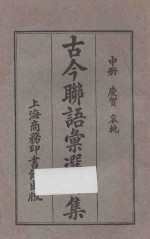 中冊 慶賀 哀輓
古今聯語彙選集
上海商務印書館出版